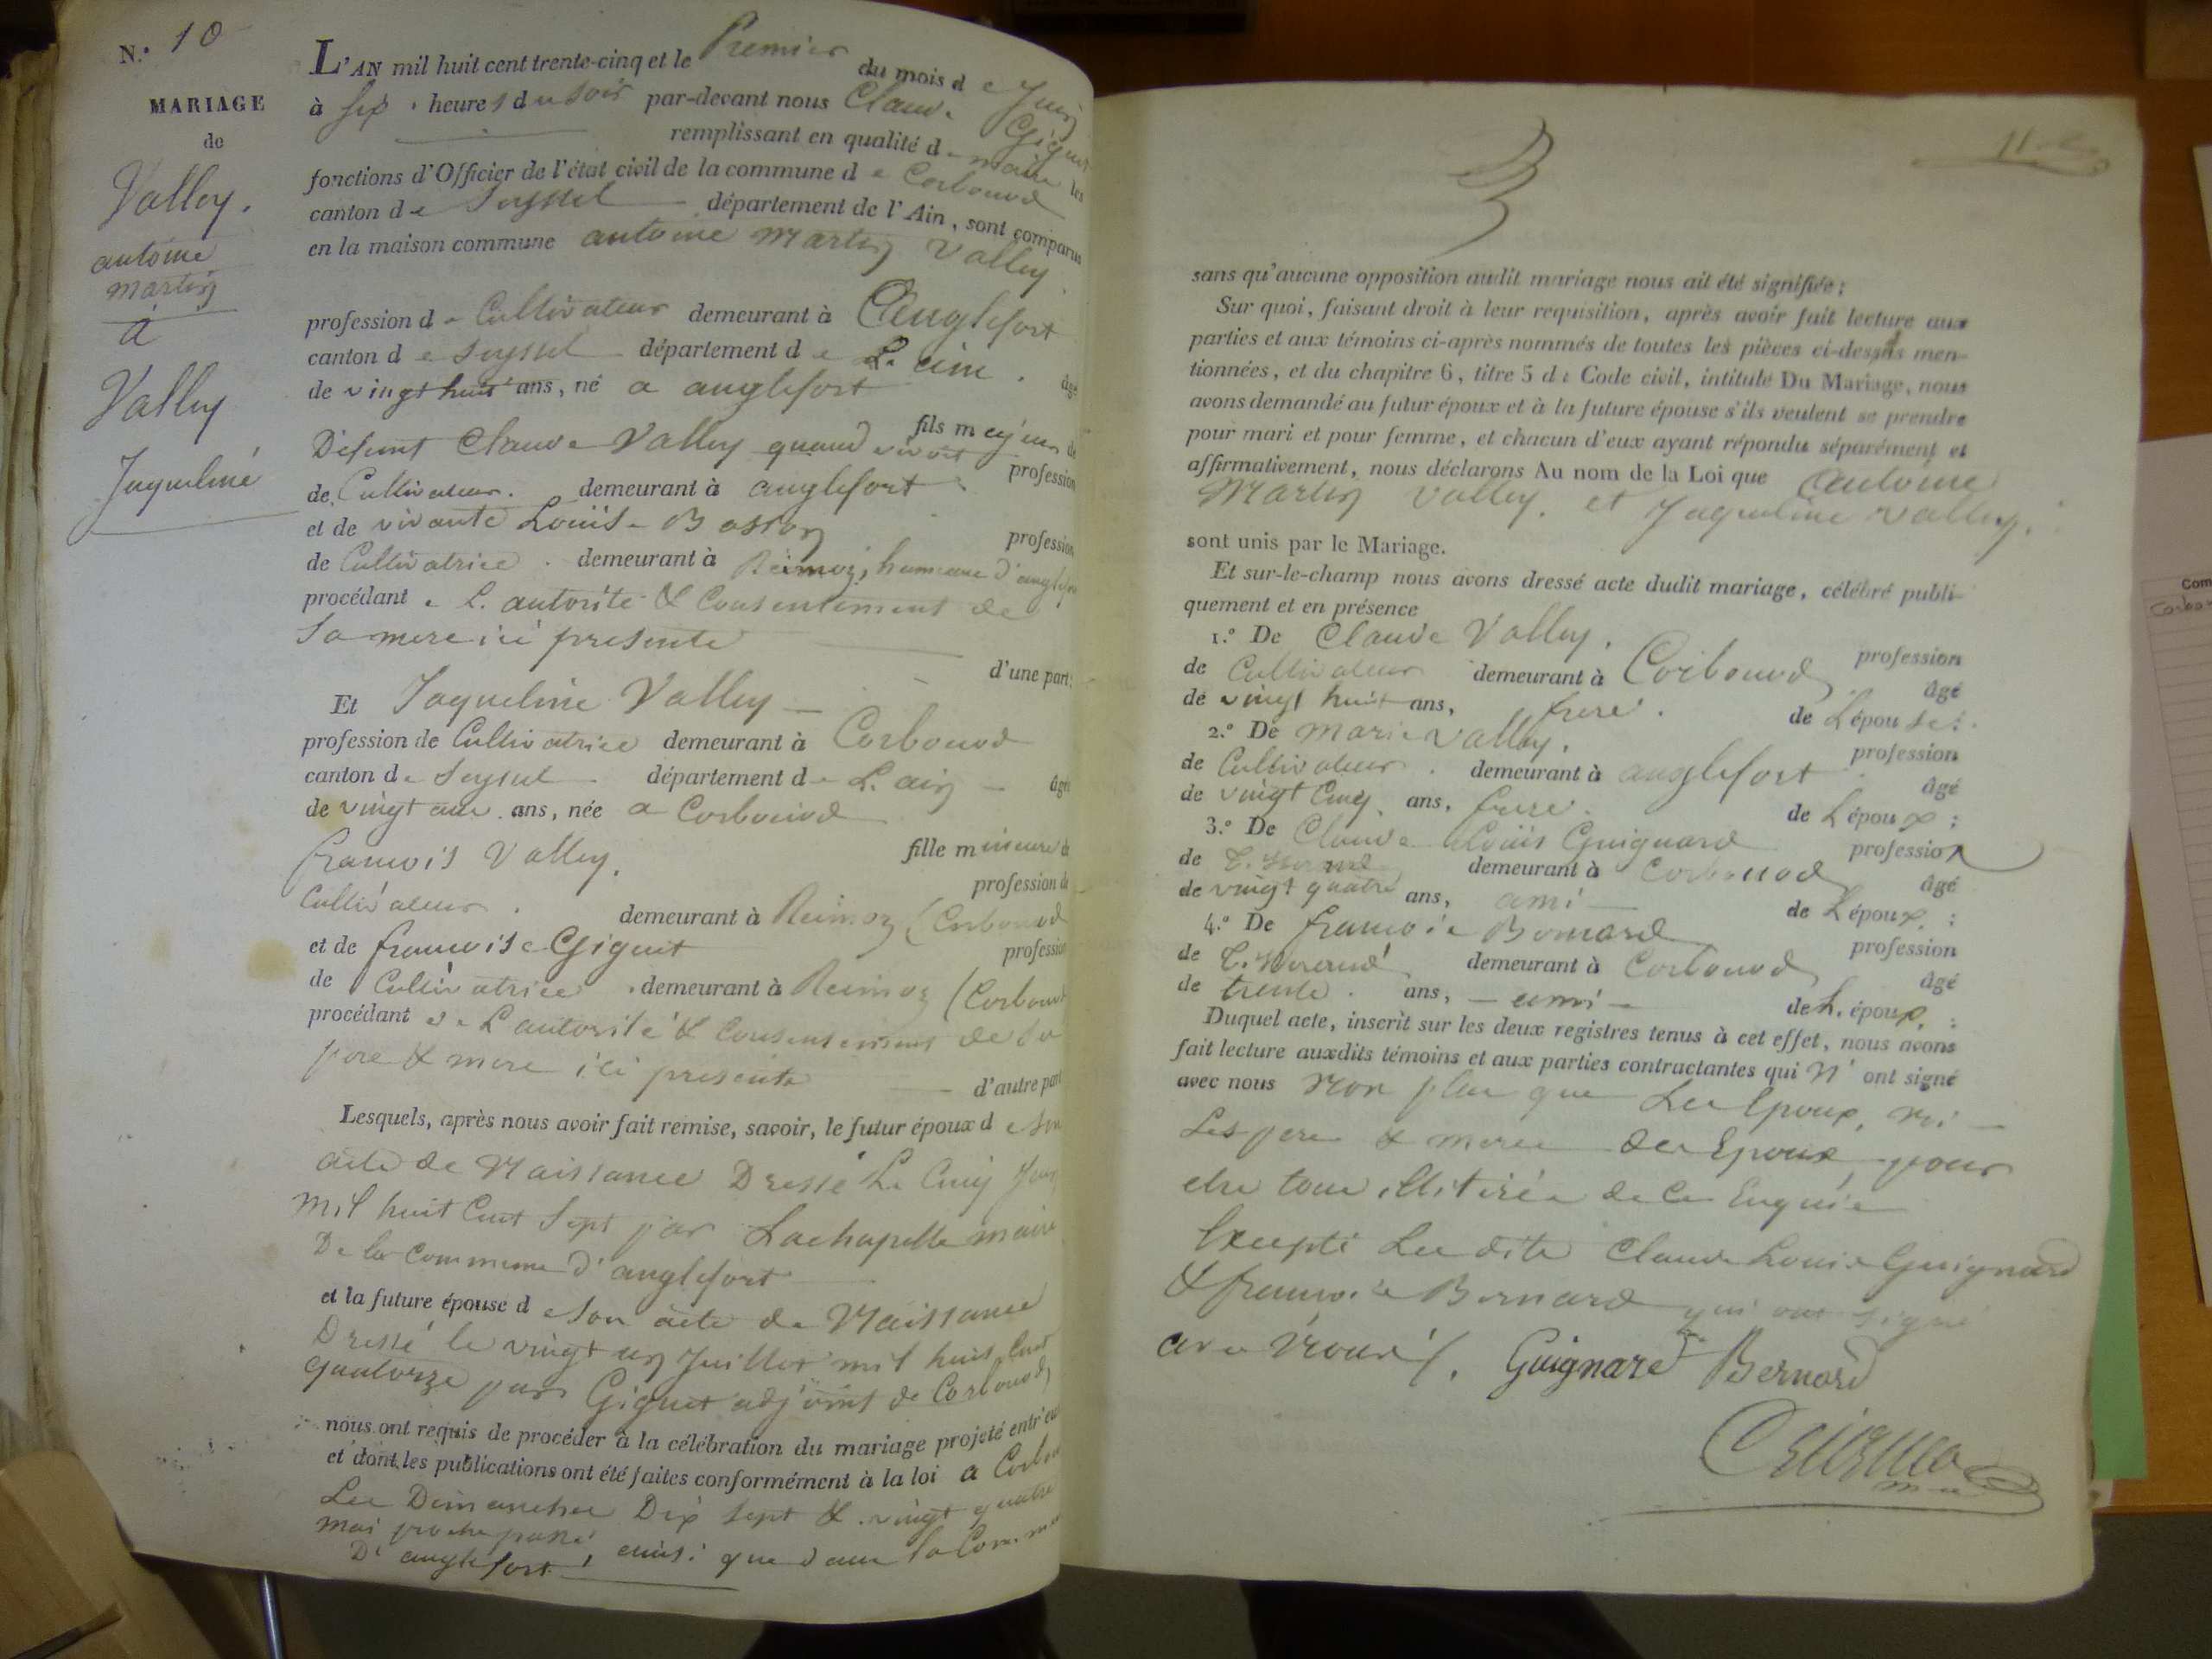 N.º 10
MARIAGE
de
Valley.
antoine
martin
a
Valley
Jaqueline
L'AN mil huit cent trente-cinq et le Premier du mois de Juin
à six heures du soir par-devant nous Claude Giguet
remplissant en qualité de maire les
fonctions d'Officier de l'état civil de la commune de Corbonod
canton de Seyssel département de l'Ain, sont comparus
en la maison commune antoine Martin Valley
profession de Cultivateur demeurant à anglefort
canton de Seyssel département de L'ain. âgé
de vingt huit ans, né a anglefort
fils majeur de
Défunt Claude Valley quand vivoit profession
de Cultivateur. demeurant à anglefort
et de vivante Louise Bosson profession
de Cultivatrice. demeurant à Reimoz, hameau d'anglefort
procédant de L'autorité & Consentement de
Sa mere ici presente
d'une part;
Et Jaqueline Valley
profession de Cultivatrice demeurant à Corbonod
canton de Seyssel département de L'ain âgée
de vingt ans, née a Corbonod
fille mineure de
francois Valley. profession de
Cultivateur. demeurant à Reimoz (Corbonod
et de francoise Giguet profession
de Cultivatrice. demeurant à Reimoz (Corbonod
procédant de L'autorité & Consentement de Sa
pere & mere ici presente d'autre part
Lesquels, après nous avoir fait remise, savoir, le futur époux de son
acte de Naissance Dressé Le Cinq
mil huit Cent Sept par Lachapelle maire
De la Commune d'anglefort
et la future épouse de Son acte de Naissance
Dressé le vingt un Juillet mil huit Cent
quatorze par Giguet adjoint de Corbonod
nous ont requis de procéder à la célébration du mariage projeté entr'eux
et dont les publications ont été faites conformément à la loi a Corbonod
Les Dimanches Dix Sept & vingt quatre
mai proche passé, ainsi que dans la Commune
D'anglefort
sans qu'aucune opposition audit mariage nous ait été signifiée;
Sur quoi, faisant droit à leur requisition, après avoir fait lecture aux
parties et aux témoins ci-après nommés de toutes les pièces ci-dessus men-
tionnées, et du chapitre 6, titre 5 du Code civil, intitulé Du Mariage, nous
avons demandé au futur époux et à la future épouse s'ils veulent se prendre
pour mari et pour femme, et chacun d'eux ayant répondu séparément et
affirmativement, nous déclarons Au nom de la Loi que antoine
Martin Valley. et Jaqueline Valley.
sont unis par le Mariage.
Et sur-le-champ nous avons dressé acte dudit mariage, célébré publi-
quement et en présence
1.º De Claude Valley. profession
de Cultivateur demeurant à Corbonod âgé
de vingt huit ans, frere. de L'épouse;
2.º De marie Valley. profession
de Cultivateur. demeurant à anglefort âgé
de vingt Cinq ans, frere. de L'époux;
3.º De Claude Louis Guignard profession
de demeurant à Corbonod âgé
de vingt quatre ans, ami de L'époux;
4.º De francois Bernard profession
de demeurant à Corbonod âgé
de trente. ans, ami de L'époux;
Duquel acte, inscrit sur les deux registres tenus à cet effet, nous avons
fait lecture auxdits témoins et aux parties contractantes qui n'ont signé
avec nous Non plus que Les Epoux, ni
Les pere & mere des Epoux, pour
etre tous de ce Enquis
Excepté Les dits Claude Louis Guignard
& francois Bernard qui ont signé
avec nous. Guignard Bernard
Com